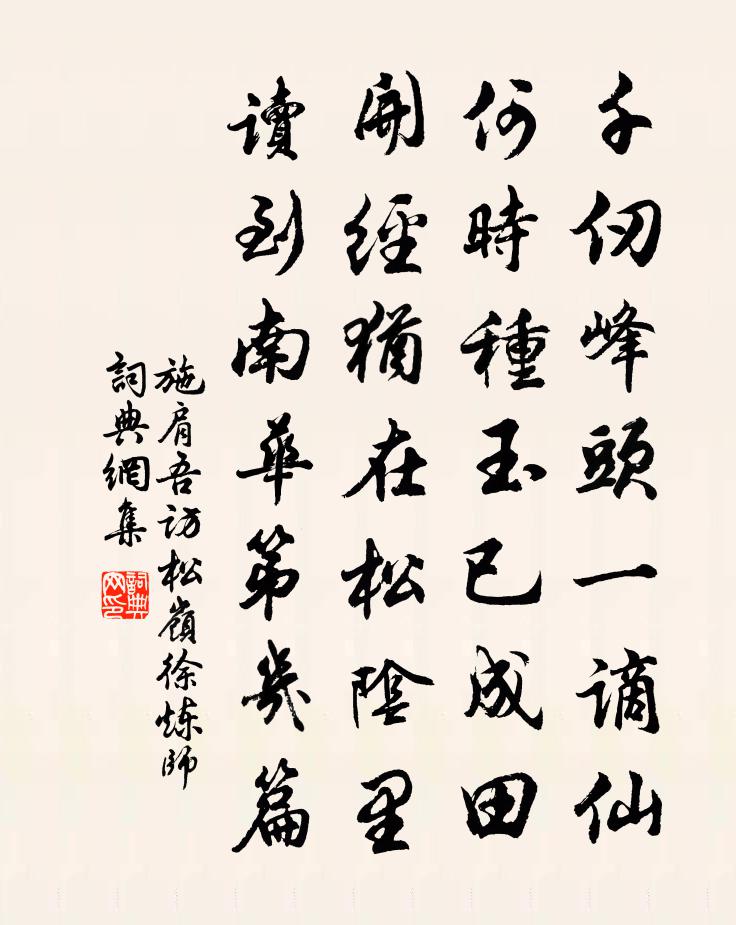 千仞峰頭一謫仙
何時種玉已成田
開經猶在松陰里
讀到南華第幾篇
施肩吾訪松嶺徐炼師
詞典網集
詞典网印